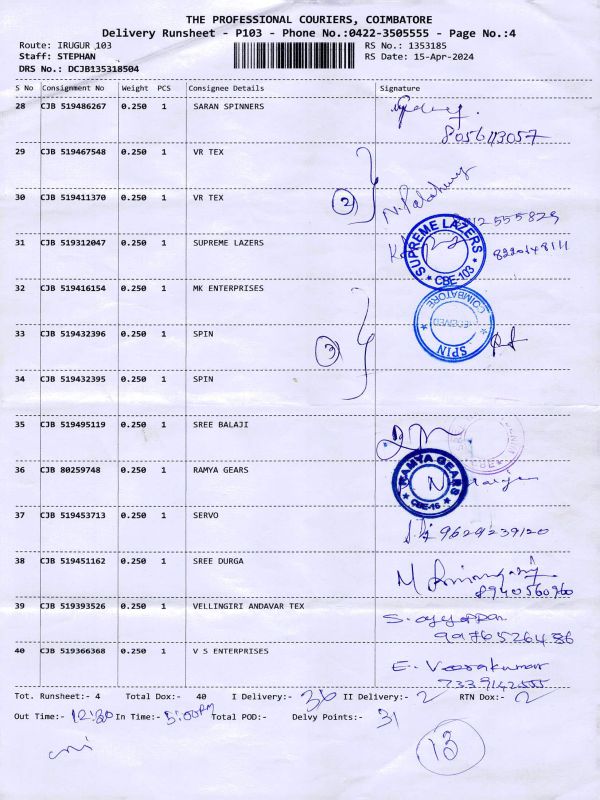 THE PROFESSIONAL COURIERS, COIMBATORE
Delivery Runsheet - P103 - Phone No.:0422-3505555 - Page No.:4
Route: IRUGUR 103 RS No.: 1353185
Staff: STEPHAN RS Date: 15-Apr-2024
DRS No.: DCJB135318504
S No Consignment No Weight PCS Consignee Details Signature
28 CJB 519486267 0.250 1 SARAN SPINNERS
8056113057
29 CJB 519467548 0.250 1 VR TEX
2
30 CJB 519411370 0.250 1 VR TEX
31 CJB 519312047 0.250 1 SUPREME LAZERS
SUPREME LAZERS CBE-103
32 CJB 519416154 0.250 1 MK ENTERPRISES
COIMBATORE RECEIVED SPIN
33 CJB 519432396 0.250 1 SPIN
3
34 CJB 519432395 0.250 1 SPIN
35 CJB 519495119 0.250 1 SREE BALAJI
36 CJB 80259748 0.250 1 RAMYA GEARS
RAMYA GEARS CBE-16
37 CJB 519453713 0.250 1 SERVO
9629239120
38 CJB 519451162 0.250 1 SREE DURGA
8940560960
39 CJB 519393526 0.250 1 VELLINGIRI ANDAVAR TEX
S. ayyappan
9976526486
40 CJB 519366368 0.250 1 V S ENTERPRISES
E. Veerakumar
7339142555
Tot. Runsheet:- 4 Total Dox:- 40 I Delivery:- 36 II Delivery:- 2 RTN Dox:- 2
Out Time:- 12:20 In Time:- 5:00PM Total POD:- Delvy Points:- 31
13